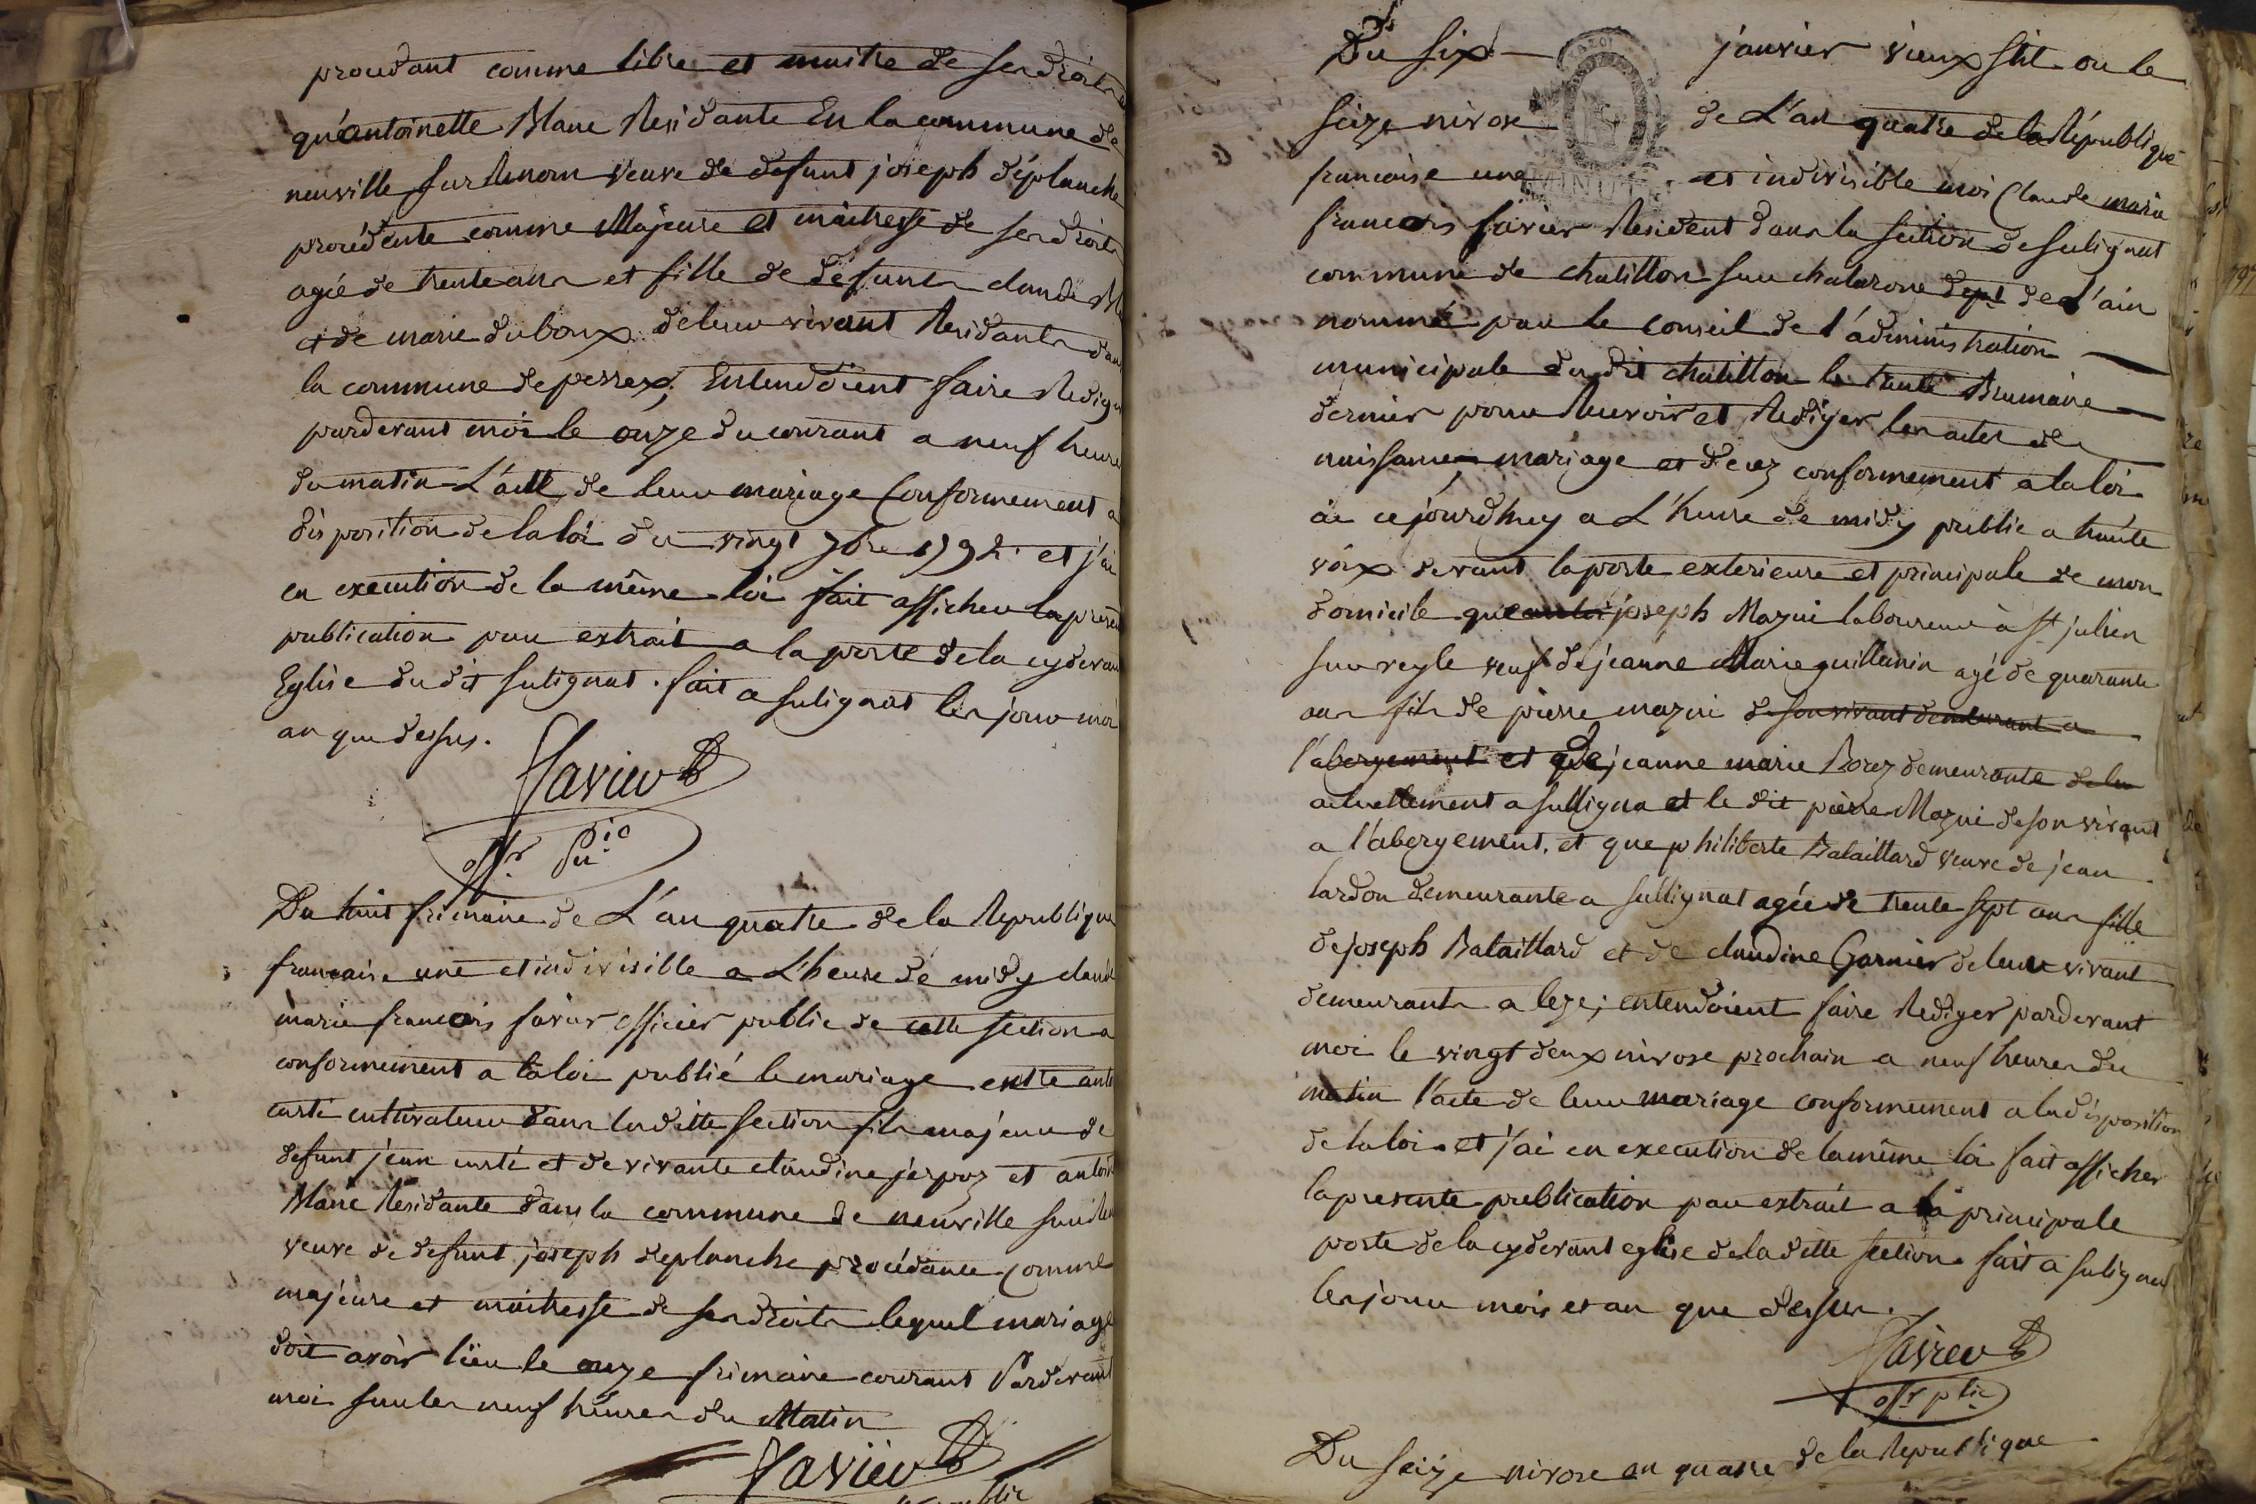 procedant comme libre et maitre de ses droits
qu'antoinette Blanc Residante En la commune de
neuville sur Renom veuve de defunt joseph déplanche
procédente comme Majeure et maitresse de ses droits
agée de trente ans et fille de défunts claude
et de marie duboux de leur vivant Residants dans
la commune de perrex, Entendoient faire Rediger
pardevant moi le onze du courant a neuf heure
du matin L'acte de leur mariage Conformement a
disposition de la loi du vingt 7bre 1792. et j'ai
en execution de la même loi fait afficher la present
publication par extrait a la porte de la cydevant
Eglise du dit sulignat. fait a sulignat les jour moi
an que dessus.
favier
offr Pu.ic
Du huit frimaire de L'an quatre de la Republique
francaise une et indivisible a L'heure de midy claude
marie francois favier officier public de cette section a
conformement a la loi publié le mariage entre
curté cultivateur dans laditte section fils majeur de
defunt jean curté et de vivante claudine jerpoz et
Blanc Residante dans la commune de neuville sur
veuve de defunt joseph deplanche procédante comme
majeure et maitresse de ses droits lequel mariage
doit avoir lieu le onze frimaire courant Pardevant
moi sur les neuf heures du Matin
favier
Du six janvier vieux stil ou le
seize nivose de L'an quatre de la République
francaise une et indivisible moi Claude marie
francois favier Resident dans la section de sulignat
commune de chatillon sur chalarone dept de l'ain
nommé par le conseil de l'administration
municipale du dit chatillon le trente Brumaire
dernier pour Recevoir et Rediger les actes de
naissance, mariage et décez conformement a la loi
ai cejourdhuy a L'heure de midy publié a haute
voix devant la porte exterieure et principale de mon
domicile que joseph Mazui laboureur à st julien
sur veyle veuf de jeanne Marie guillemin agé de quarante
ans fils de pierre mazui de son vivant demeurant a
l'abergement et de jeanne marie Borez demeurante de leu
actuellement a sulligna et le dit pierre Mazui de son vivant
a l'abergement. et que philiberte Bataillard veuve de jean
lardon demeurante a sullignat agée de trente sept ans fille
de joseph Bataillard et de claudine Garnier de leur vivant
demeurants a leze; entendoient faire Rediger pardevant
moi le vingt deux nivose prochain a neuf heures du
matin l'acte de leur mariage conformement a la disposition
de la loi. et j'ai en execution de la même loi fait afficher
la presente publication par extrait a la principale
porte de la cydevant eglise de la ditte section. fait a sulignat
les jour mois et an que dessus.
favier
offr plic
Du seize nivose an quatre de la Republique